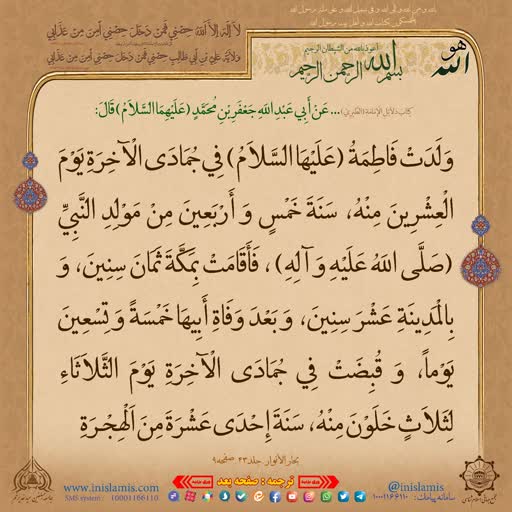 لا إله إلا الله حِصْنِي فَمَنْ دَخَلَ حِصْنِي أَمِنَ مِنْ عَذَابِي
وَلَايَةُ عَلِيِّ بْنِ أَبِي طَالِبٍ حِصْنِي فَمَنْ دَخَلَ حِصْنِي أَمِنَ مِنْ عَذَابِي
هو
الله
أعوذ بالله من الشيطان الرجيم
بسم الله الرحمن الرحيم
کتاب دلائل الإمامة (الطبري) ... عَنْ أَبِي عَبْدِ اللَّهِ جَعْفَرِ بْنِ مُحَمَّدٍ (عَلَيْهِمَا السَّلَامُ) قَالَ:
وَلَدَتْ فَاطِمَةُ (عَلَيْهَا السَّلَامُ) فِي جُمَادَى الْآخِرَةِ يَوْمَ
الْعِشْرِينَ مِنْهُ، سَنَةَ خَمْسٍ وَ أَرْبَعِينَ مِنْ مَوْلِدِ النَّبِيِّ
(صَلَّى اللَّهُ عَلَيْهِ وَ آلِهِ) ، فَأَقَامَتْ بِمَكَّةَ ثَمَانَ سِنِينَ، وَ
بِالْمَدِينَةِ عَشْرَ سِنِينَ، وَ بَعْدَ وَفَاةِ أَبِيهَا خَمْسَةً وَ تِسْعِينَ
يَوْماً، وَ قُبِضَتْ فِي جُمَادَى الْآخِرَةِ يَوْمَ الثَّلَاثَاءِ
لِثَلَاثٍ خَلَوْنَ مِنْهُ، سَنَةَ إِحْدَى عَشْرَةَ مِنَ الْهِجْرَةِ
بحار الأنوار جلد۴۳ صفحه۹
@inislamis
سامانه پیامک: ۱۰۰۰۱۱۶۶۱۱۰
ورق بزنید
ترجمه : صفحه بعد
ورق بزنید
www.inislamis.com
SMS system: 10001166110